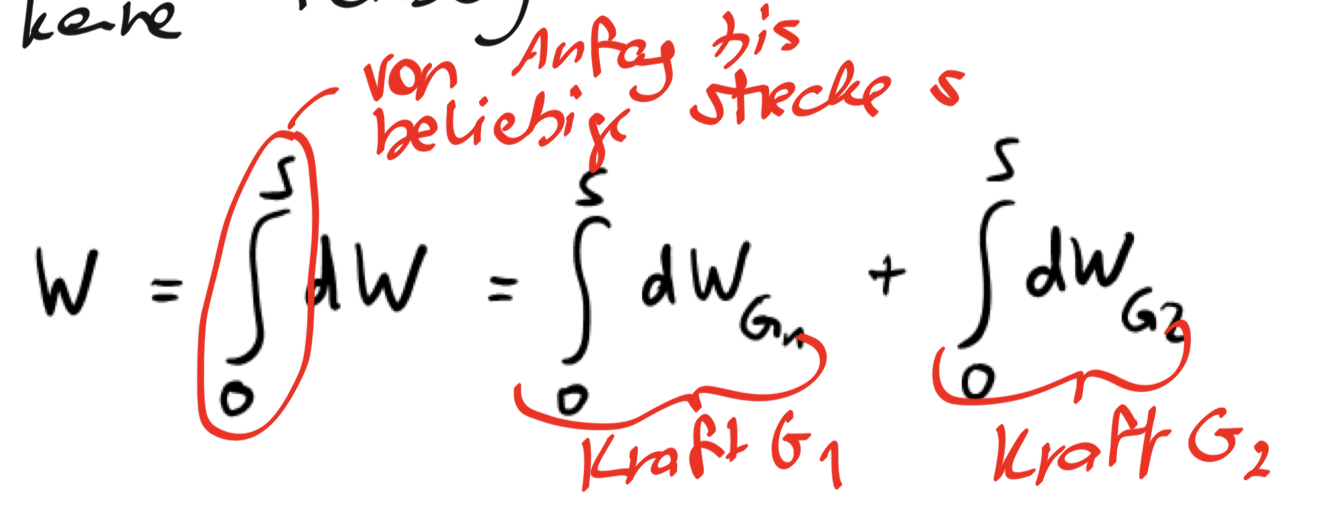 keine
von Anfag bis
beliebige strecke s
W = ∫₀ˢ dW = ∫₀ˢ dW_G1 + ∫₀ˢ dW_G2
Kraft G1 Kraft G2